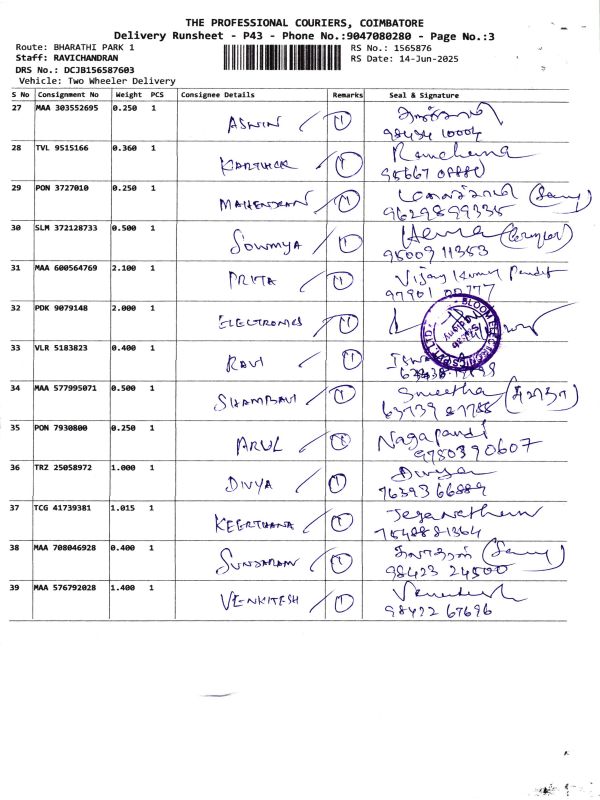 THE PROFESSIONAL COURIERS, COIMBATORE
Delivery Runsheet - P43 - Phone No.:9047080280 - Page No.:3
Route: BHARATHI PARK 1
RS No.: 1565876
Staff: RAVICHANDRAN
RS Date: 14-Jun-2025
DRS No.: DCJB156587603
Vehicle: Two Wheeler Delivery
S No Consignment No Weight PCS Consignee Details Remarks Seal & Signature
27 MAA 303552695 0.250 1
ASWIN 1
28 TVL 9515166 0.360 1
KARTHICK 1
29 PON 3727010 0.250 1
MAHENDRAN 1
9629899335
30 SLM 372128733 0.500 1
SOWMYA 1 Hema
95009 11353
31 MAA 600564769 2.100 1
PRIYA 1 Vijay Kumar Pandit
32 PDK 9079148 2.000 1
ELECTRONICS 1
33 VLR 5183823 0.400 1
RAVI 1
34 MAA 577995071 0.500 1
SHAMBAVI 1
63739 87788
35 PON 7930800 0.250 1
ARUL 1 Nagapandi
9780390607
36 TRZ 25058972 1.000 1
DIVYA 1 Divya
76393 66889
37 TCG 41739381 1.015 1
KEERTHANA 1
7548881364
38 MAA 708046928 0.400 1
SUNDARAM 1
98423 24500
39 MAA 576792028 1.400 1
VENKITESH 1
98422 67696